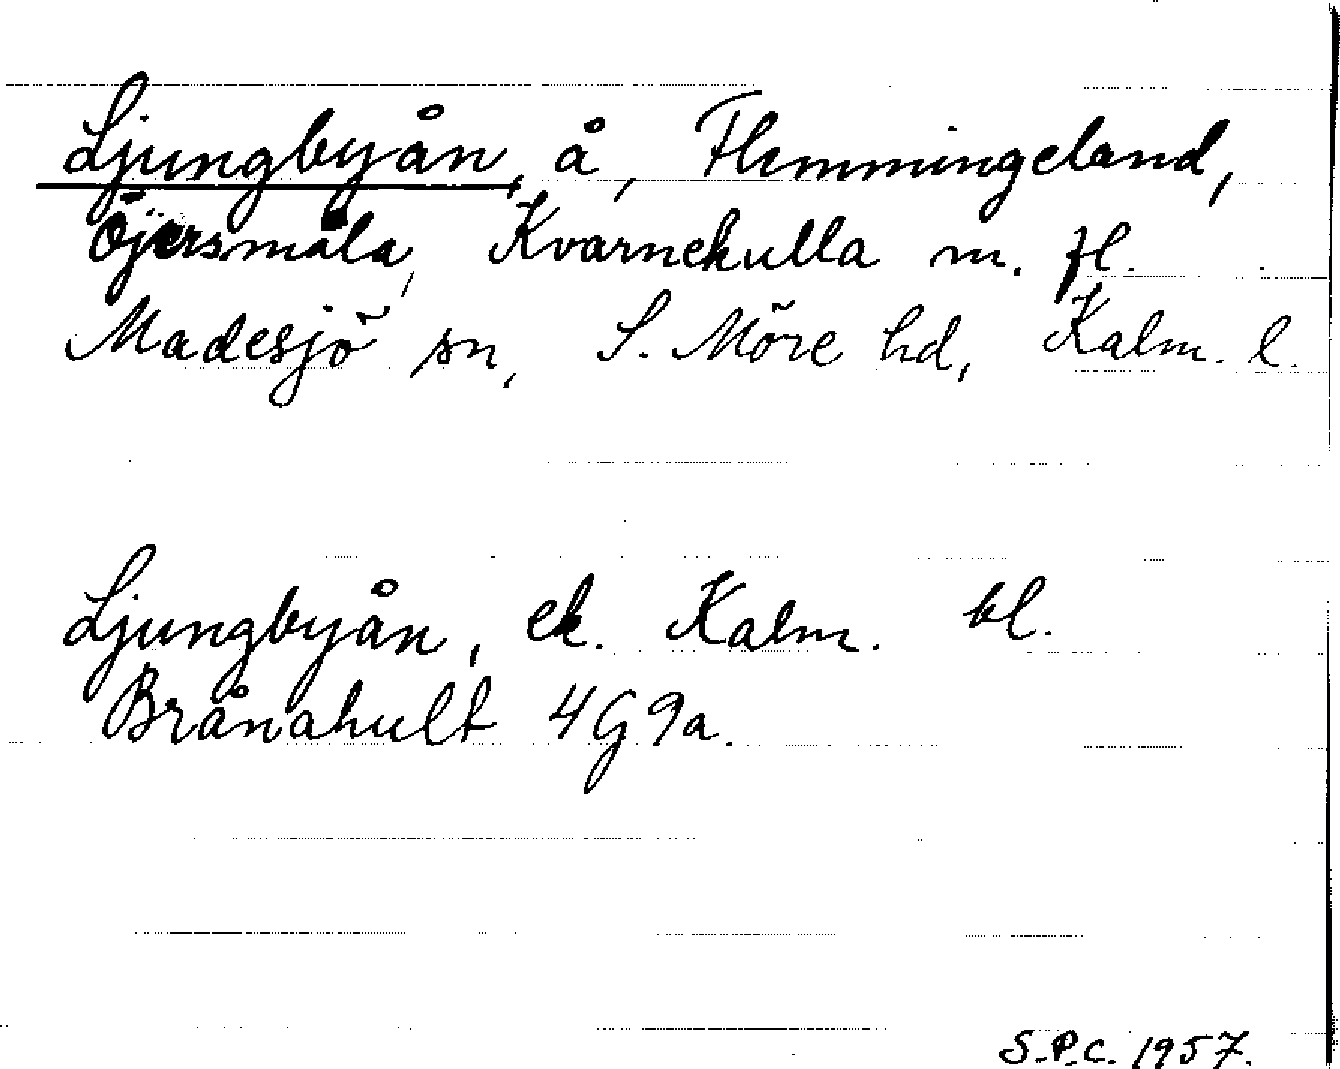 Ljungbyån, å, Flemmingeland,
Öjersmåla, Kvarnekulla m. fl.
Madesjö sn, S. Möre hd, Kalm. l.
Ljungbyån, ek. Kalm. bl.
Brånahult 4G9a.
S.P.C. 1957.